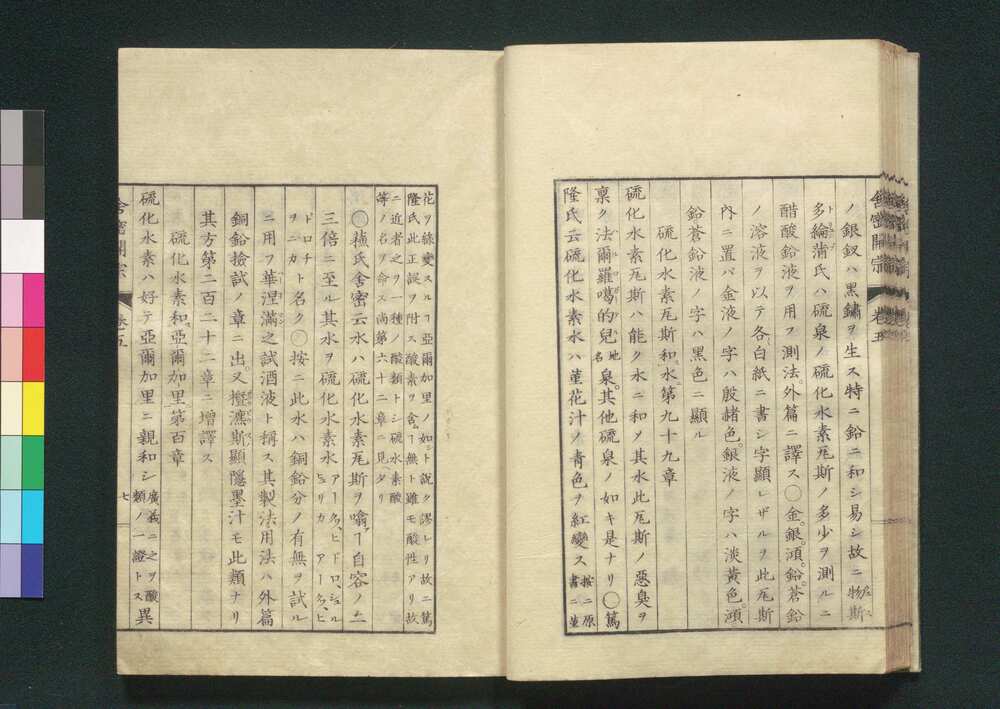 ノ銀釵ハ黒鏽ヲ生ス特ニ鉛ニ和シ易シ故ニ物斯
多綸蒲氏ハ硫泉ノ硫化水素瓦斯ノ多少ヲ測ルニ
醋酸鉛液ヲ用フ測法外篇ニ譯ス○金。銀。澒。鉛。蒼鉛
ノ溶液ヲ以テ各白紙ニ書シ字顯レザルヲ此瓦斯
內ニ置バ金液ノ字ハ殷赭色。銀液ノ字ハ淡黄色。澒
鉛蒼鉛液ノ字ハ黒色ニ顯ル
硫化水素瓦斯和水 第九十九章
硫化水素瓦斯ハ能ク水ニ和ソ其水此瓦斯ノ悪臭ヲ
稟ク法爾羅噶的兒地名泉。其他硫泉ノ如キ是ナリ○篤
隆氏云硫化水素水ハ菫花汁ノ青色ヲ紅變ス按ニ原書ニ菫
花ヲ綠變スルヿ亞爾加里ノ如ト說ク謬レリ故ニ篤
隆氏此正誤ヲ附ス酸素ヲ含ヿ無ト雖モ酸性アリ故
ニ近者之ヲ一種ノ酸類トシ硫水素酸
等ノ名ヲ命ス尚第六十二章ニ見タリ
○蘋氏舍密云水ハ硫化水素瓦斯ヲ噏ヿ自容ノ二
三倍ニ至ル其水ヲ硫化水素水アークヒドロシュルヒュリカアークヒ
ドロチヲニカト名ク○按ニ此水ハ銅鉛分ノ有無ヲ試ル
ニ用フ華涅滿之試酒液ト稱ス其製法用法ハ外篇
銅鉛撿試ノ章ニ出。又㯋瀌斯顯隱墨汁モ此類ナリ
其方第二百二十二章ニ增譯ス
硫化水素和亞爾加里 第百章
硫化水素ハ好テ亞爾加里ニ親和シ廣義ニ之ヲ酸類ノ一證トス異
舍密開宗
卷五
七